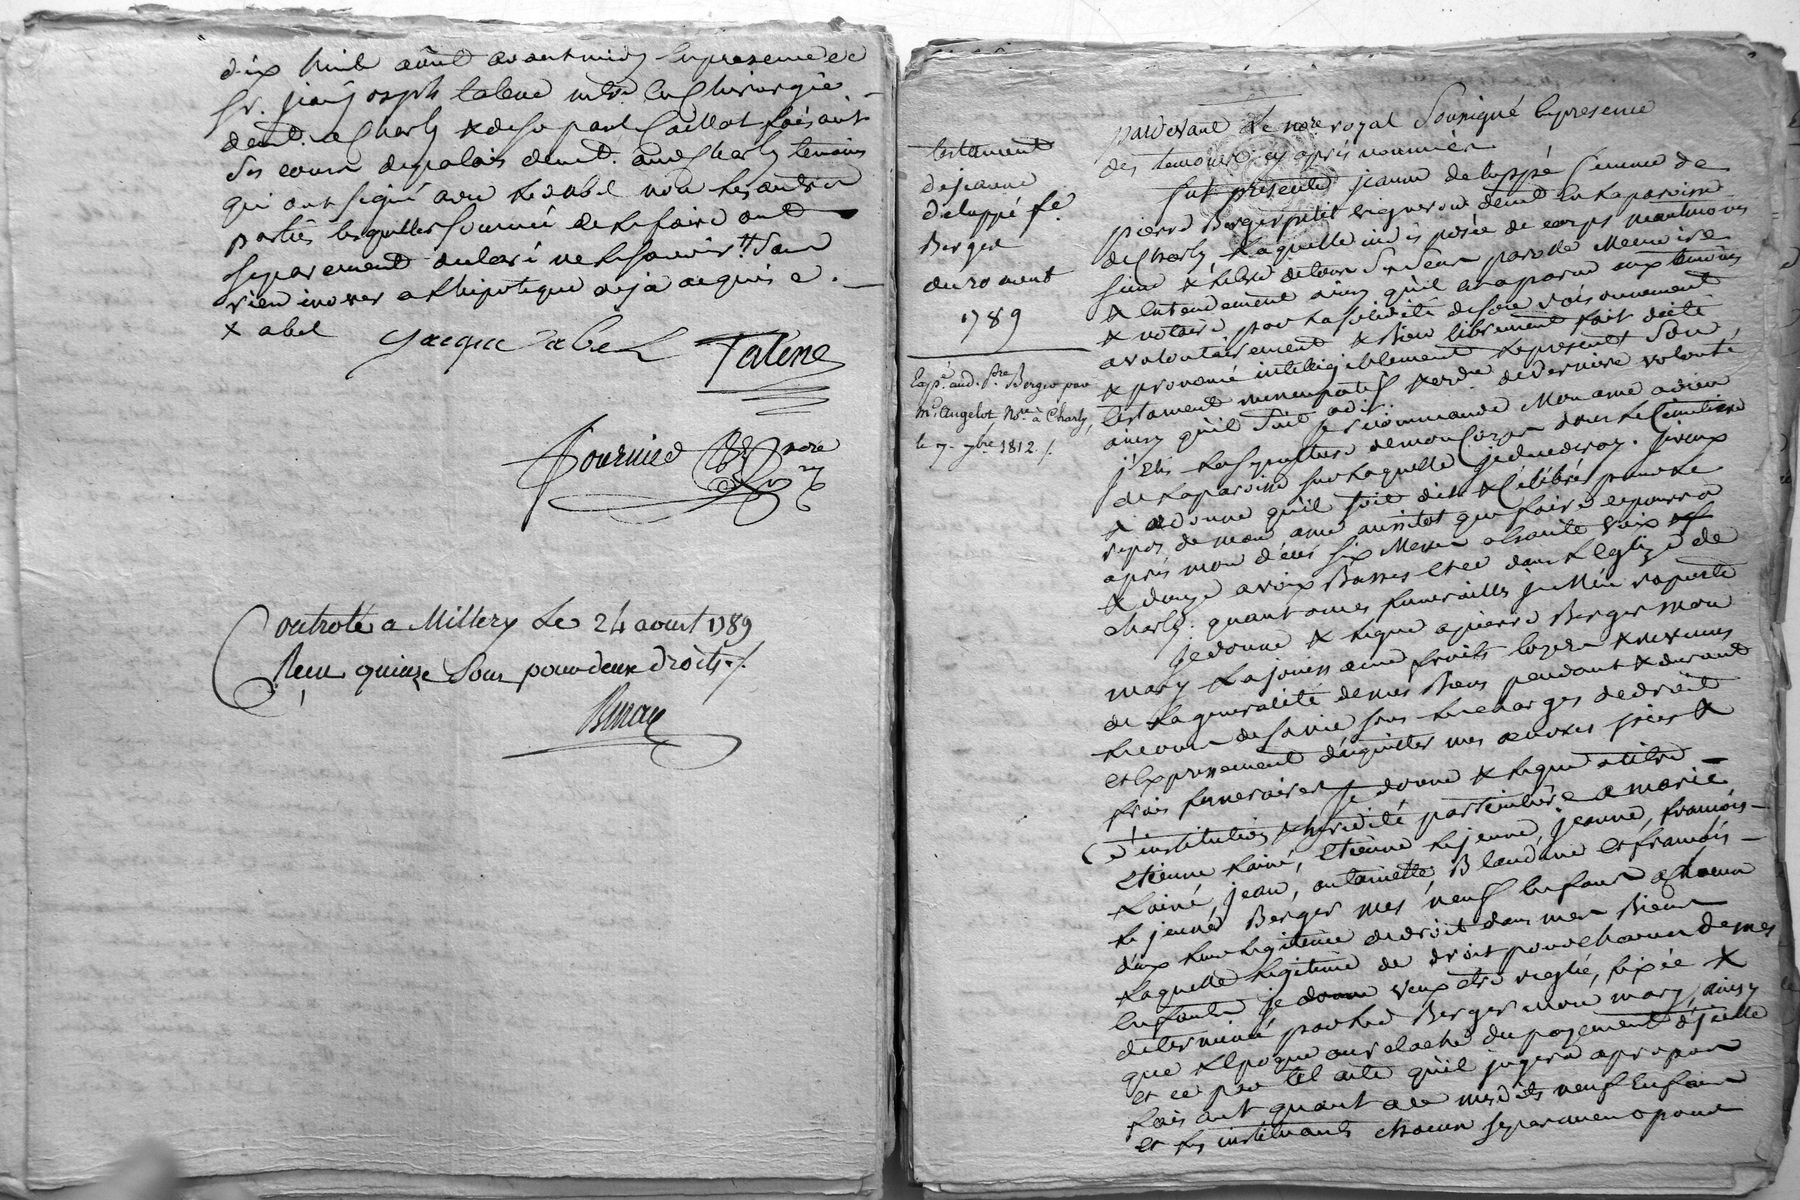 dix huit aout avant midy en presence de
Sr. jean joseph talene mtre en Chirurgie
demt. a Charly & de Sr paul Caillot faisant
ses cours de palais demt. aud. Charly temoins
qui ont signé avec led abel non les autres
parties lesquelles sommé de le faire ont
separement declaré ne le scavoir !! sans
rien inover a l'hipoteque deja acquise .
& abel
Jacque abel Talene
Fournier nore
Controlé a Millery le 24 aoust 1789
Recu quinze sous pour deux droits ./.
testament
de jeanne
deluppé fe.
Berger
du 20 aout
1789
Exp. aud. pre Berger par
me. Angelot Nre. à Charly,
le 7. 7bre 1812 ./
pardevant le nore royal soussigné en presence
des temoins cy après nommés
fut presente jeanne deluppé femme de
pierre Berger petit vigneron demt en la paroisse
de Charly laquelle indisposée de corps neantmoins
saine & libre de tous ses sens parole memoire
& entendement ainsy qu'il a aparu aux temoins
& notaire par la solidité de son raisonnement
a volontairement & bien librement fait dicté
& prononcé intelligiblement le present son
testament nuncupatif & ordre de derniere volonté
ainsy qu'il suit adir. je recommande mon ame a dieu
j'elis la sepulture de mon corps dans le cimetiere
de la paroisse sur laquelle je decederay. je veux
& ordonne qu'il soit dit & célébré pour le
repos de mon ame aussitot que faire se pourra
après mon décès six messes a haute voix
& douze a voix basses et ce dans l'eglise de
charly: quant a mes funerailles je m'en raporte
je donne & legue a pierre Berger mon
mary la jouissance fruits loyers & revenus
de la generalité de mes biens pendant & durant
le cours de sa vie sous les charges de droit
et expressement d'acquitter mes oeuvres pies &
frais funeraires je donne & legue a titre
d'institution & heredité particuliere a marie
etienne l'ainé, etienne le jeune, jeanne, françois
l'ainé, jean, antoinette, Blandine et françois
le jeune Berger mes neuf enfans a chacun
d'eux leur legitime de droit dans mes biens
laquelle legitime de droit pour chacun de mes
enfants je veux etre reglé, fixée &
determinée par led Berger mon mary, ainsy
que l'epoque ou relaché du payement d'icelle
et ce par tel acte qu'il jugera a propos
faisant quant a ce mesdits neuf enfans
et les instituant chacun separement pour